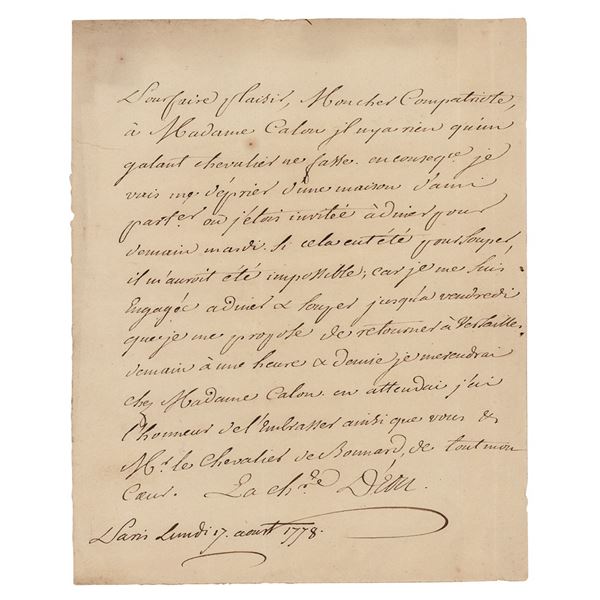 Pour faire plaisir, Mon cher Compatriote,
à Madame Calon jl n'y a rien qu'un
galant chevalier ne fasse. en conseqce. je
vais me déprier d'une maison d'ami
parter. ou j'étois invitée à diner pour
demain mardi. Si cela eut été pour Souper,
il m'auroit été impossible, car je me Suis
Engagée a diner & souper jusqu'a vendredi
que je me propose de retourner à Versailles.
demain à une heure & demie je me rendrai
chez Madame Calon. en attendant j'ai
l'honneur de l'Embrasser ainsi que vous &
Mr. le Chevalier de Bonnard, de tout mon
Cœur. La chere D'Eon.
Paris Lundi 17. aoust 1778.